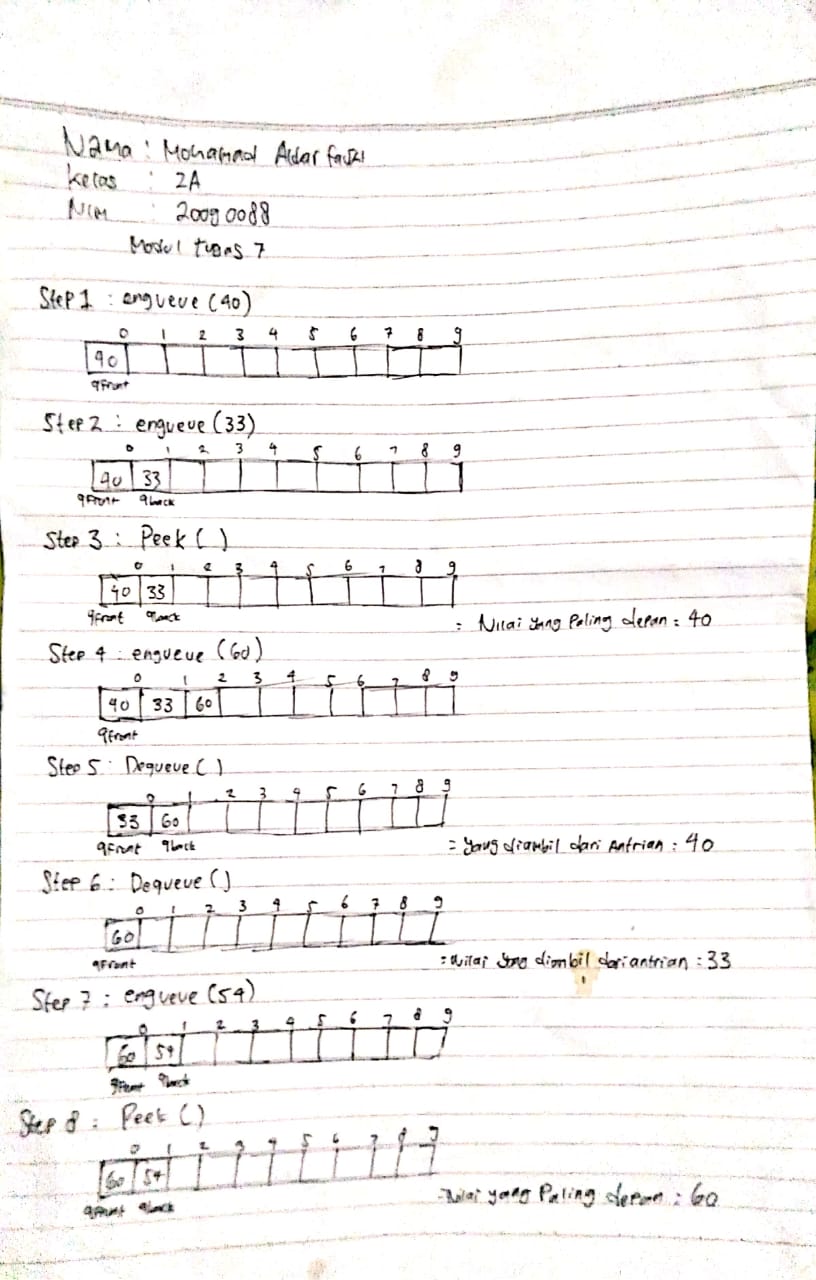 Nama : Mohamad Aldar fauzi
kelas : 2A
NIM : 20090088
Modul tugas 7
Step 1 : enqueue (40)
0 1 2 3 4 5 6 7 8 9
40
qfront
Step 2 : enqueue (33)
0 1 2 3 4 5 6 7 8 9
40 33
qfront qback
Step 3 : Peek ( )
0 1 2 3 4 5 6 7 8 9
40 33
qfront qback
= Nilai yang Paling depan : 40
Step 4 : enqueue (60)
0 1 2 3 4 5 6 7 8 9
40 33 60
qfront
Step 5 : Dequeue ( )
0 1 2 3 4 5 6 7 8 9
33 60
qfront qback
= yang diambil dari Antrian : 40
Step 6 : Dequeue ()
0 1 2 3 4 5 6 7 8 9
60
qfront
= Nilai yang diambil dari antrian : 33
Step 7 : enqueue (54)
0 1 2 3 4 5 6 7 8 9
60 54
qfront qback
Step 8 : Peek ()
0 1 2 3 4 5 6 7 8 9
60 54
qfront qback
= Nilai yang Paling depan : 60